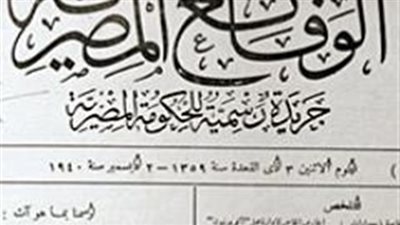 الوقائع المصرية
جريدة رسمية للحكومة المصرية
اليوم الاثنين ٣ ذى القعدة سنة ١٣٥٩ — ٢ ديسمبر سنة ١٩٤٠
الملخص